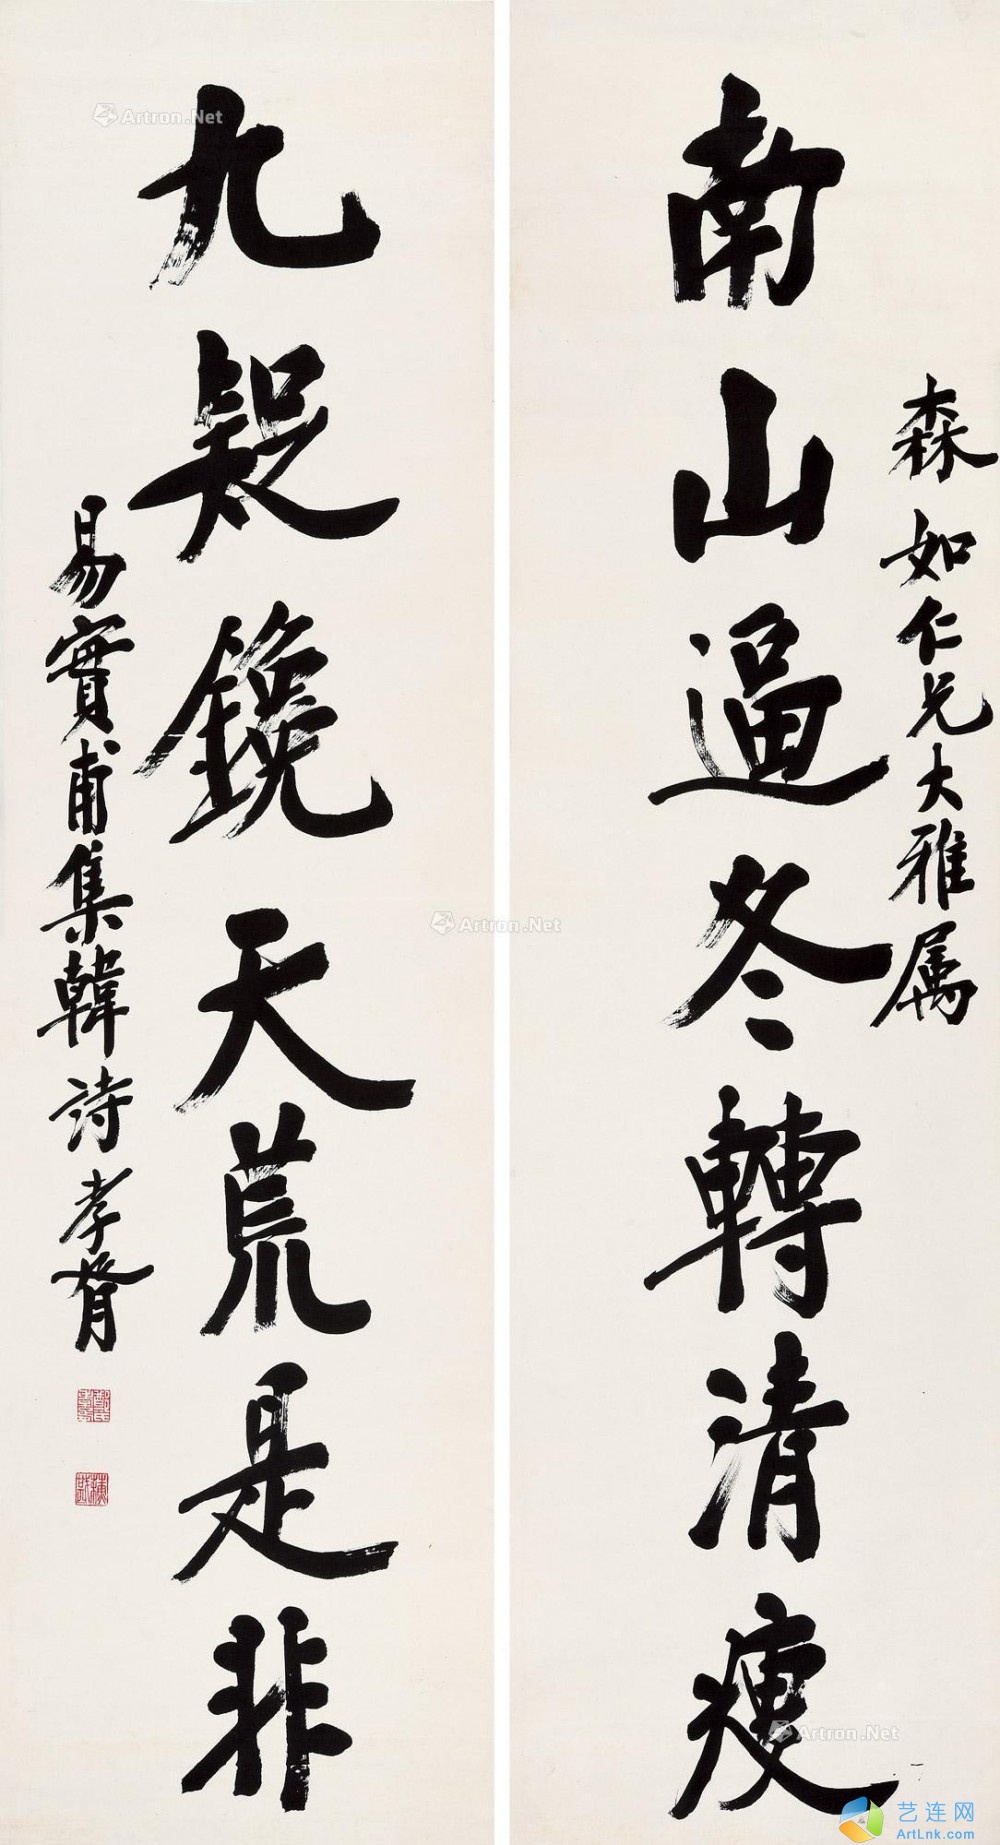 森如仁兄大雅属
南山逼冬轉清瘦
九疑鑱天荒是非
易實甫集韓詩孝胥
Artron.Net
Artron.Net
Artron.Net
Artron.Net
艺连网
ArtLnk.com